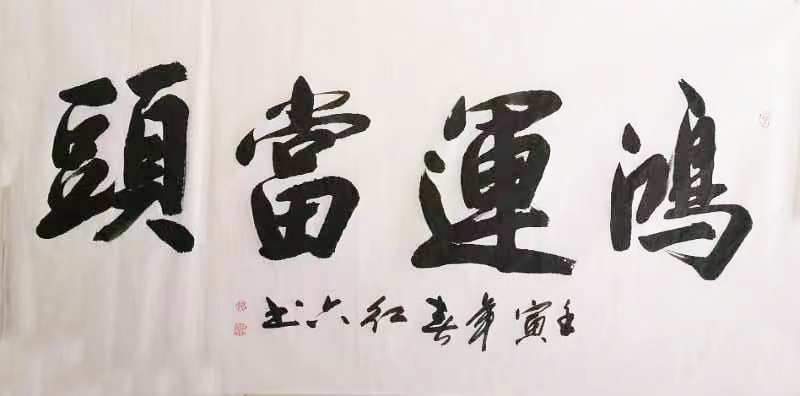 鴻運當頭
壬寅年春紅六书